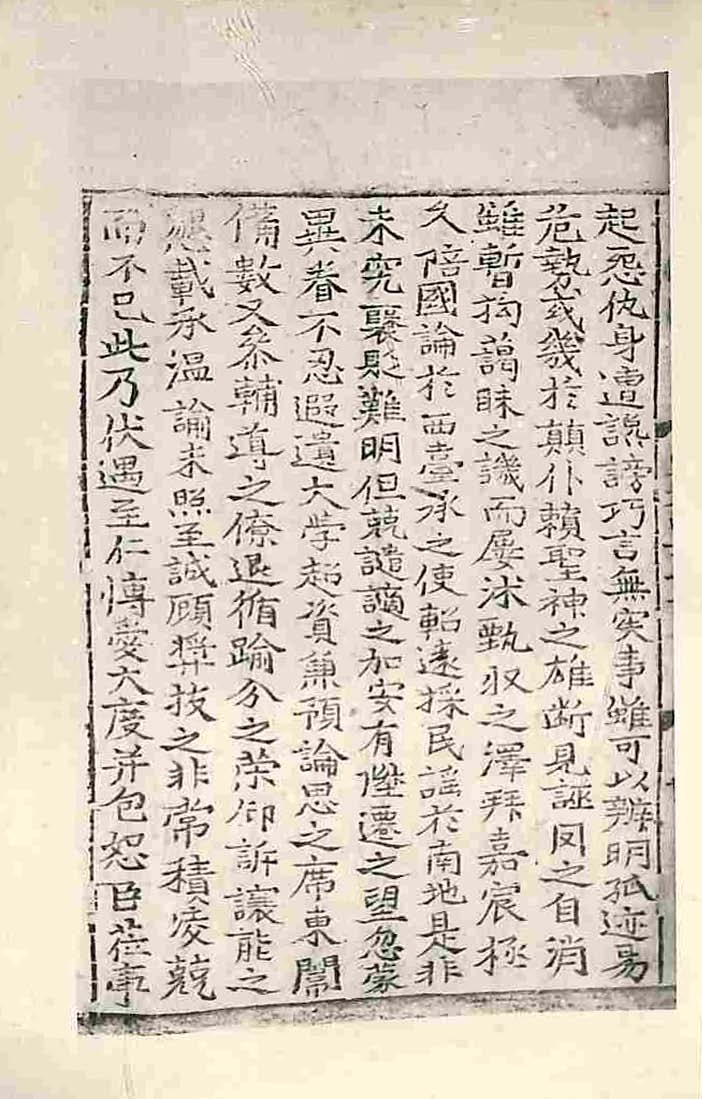 起怨仇身遭讒謗巧言無实事雖可以辨明孤迹易
危勢或幾於顛仆賴聖神之雄断見誣罔之自消
雖暫拘蔼昧之譏而屡沐甄収之澤拜嘉宸极
久陪國論於西臺承之使軺遠採民謡於南地是非
未究襲貶難明但兢譴謫之加安有陞遷之望忽蒙
異眷不忍遐遺大学起資兼預論思之席東闈
備數又叅輔導之僚退循踰分之荣仰訴讓能之
懇載承温諭未照至誠顾奨抜之非常積凌兢
而不已此乃伏遇至仁愽愛大度并包恕臣莅事